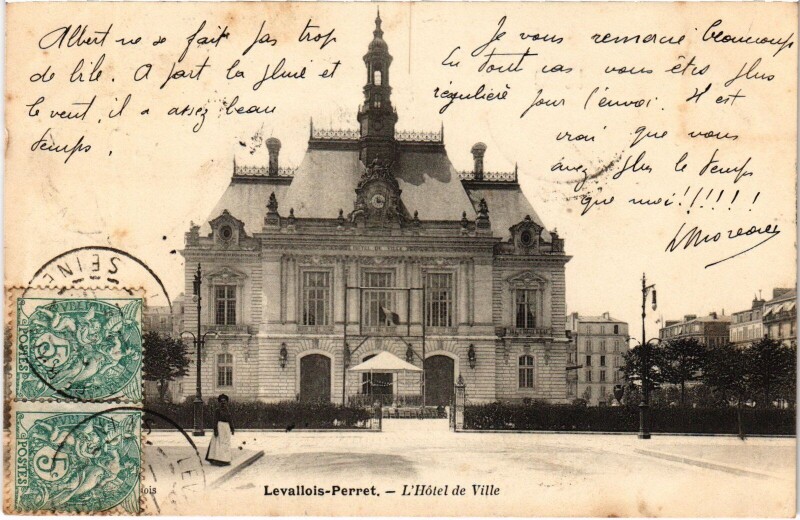 Albert ne se fait pas trop
de bile. A part la pluie et
le vent, il a assez beau
temps.
Je vous remercie beaucoup
En tout cas vous êtes plus
régulière pour l'envoi. Il est
vrai que vous
avez plus le temps
que moi!!!!!!
SEINE
5c
POSTES
5c
Levallois-Perret. — L'Hôtel de Ville